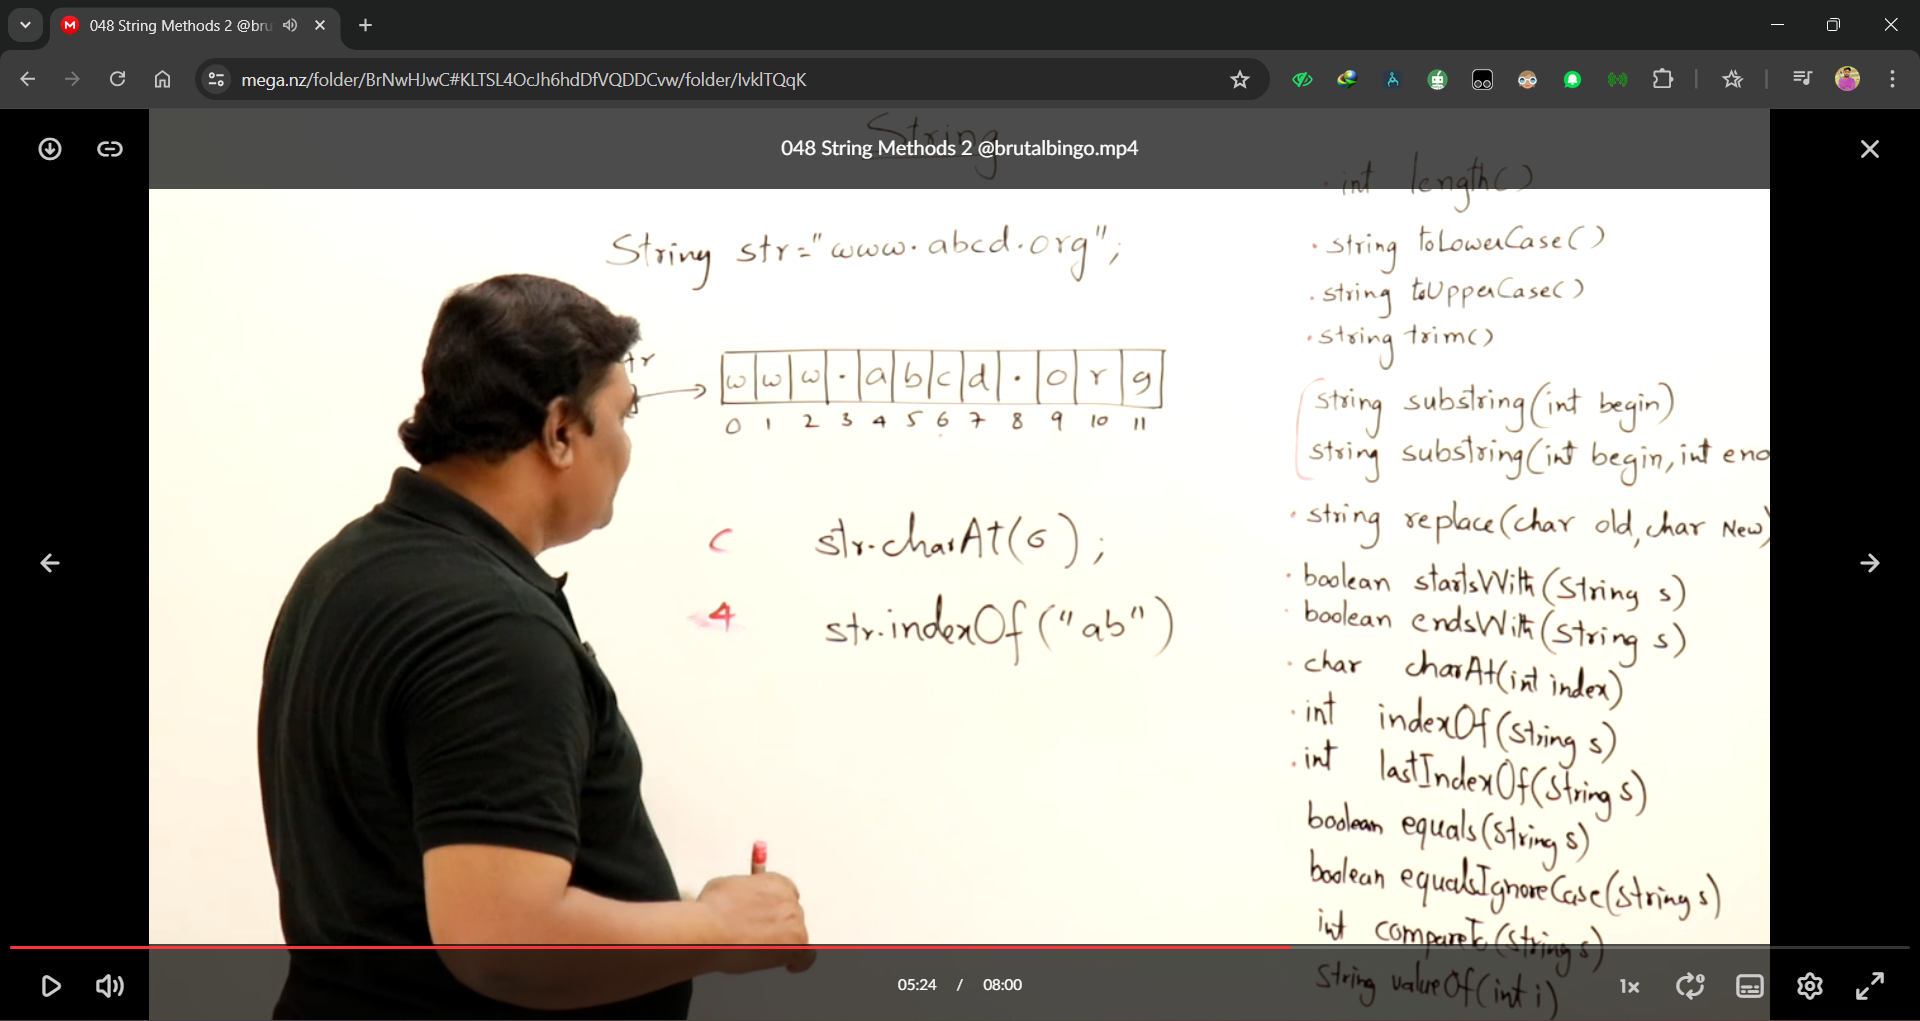 048 String Methods 2 @bru
mega.nz/folder/BrNwHJwC#KLTSL4OcJh6hdDfVQDDCvw/folder/IvklTQqK
String
048 String Methods 2 @brutalbingo.mp4
String str="www.abcd.org";
tr
w w w . a b c d . o r g
0 1 2 3 4 5 6 7 8 9 10 11
C str.charAt(6);
4 str.indexOf("ab")
. int length()
. string toLowerCase()
. string toUpperCase()
. string trim()
string substring(int begin)
string substring(int begin, int eno
. string replace(char old, char New)
. boolean startsWith(String s)
. boolean endsWith(String s)
. char charAt(int index)
. int indexOf(String s)
. int lastIndexOf(String s)
boolean equals(String s)
boolean equalsIgnoreCase(String s)
int compareTo(String s)
String valueOf(int i)
05:24 / 08:00
1x